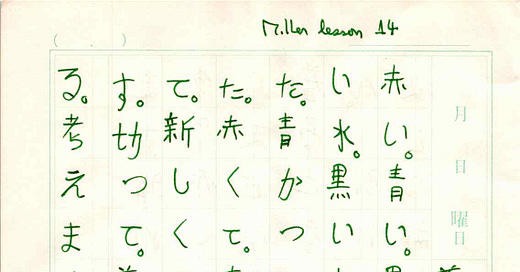 Miller lesson 14
( )
月日曜日
赤い。青い。
い水。黒い
た。青かつ
た。赤くて。
て。新しく
す。切つて。
る。考えま